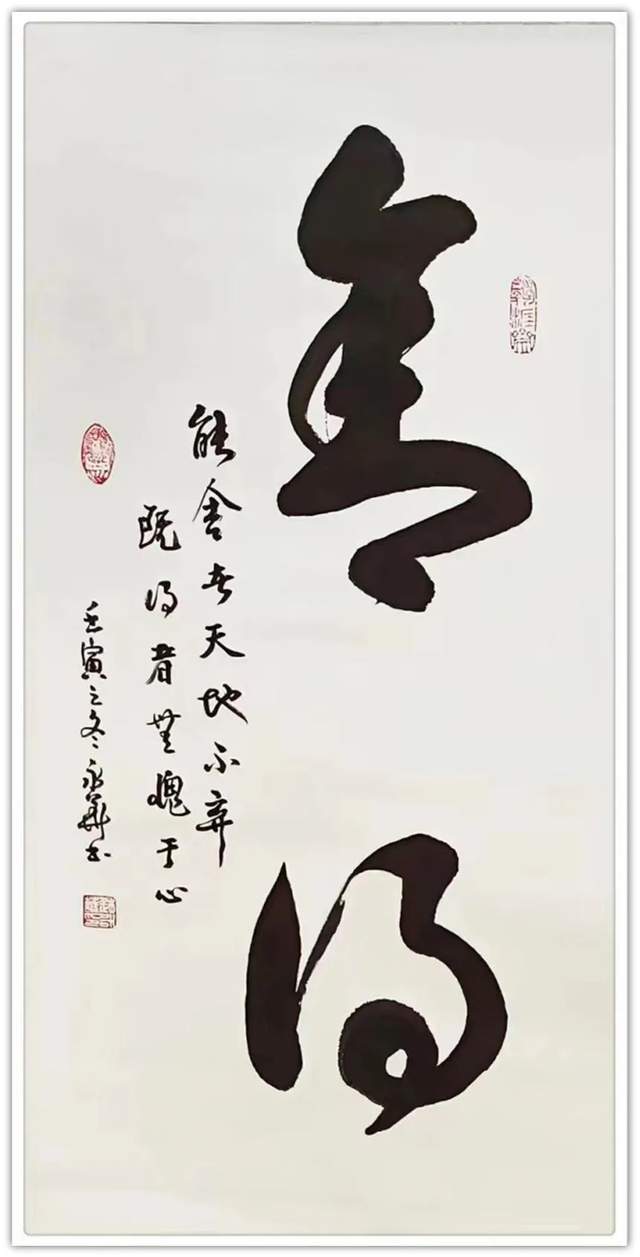 舍得
能舍者天地不弃
既得者无愧于心
壬寅之冬永华书